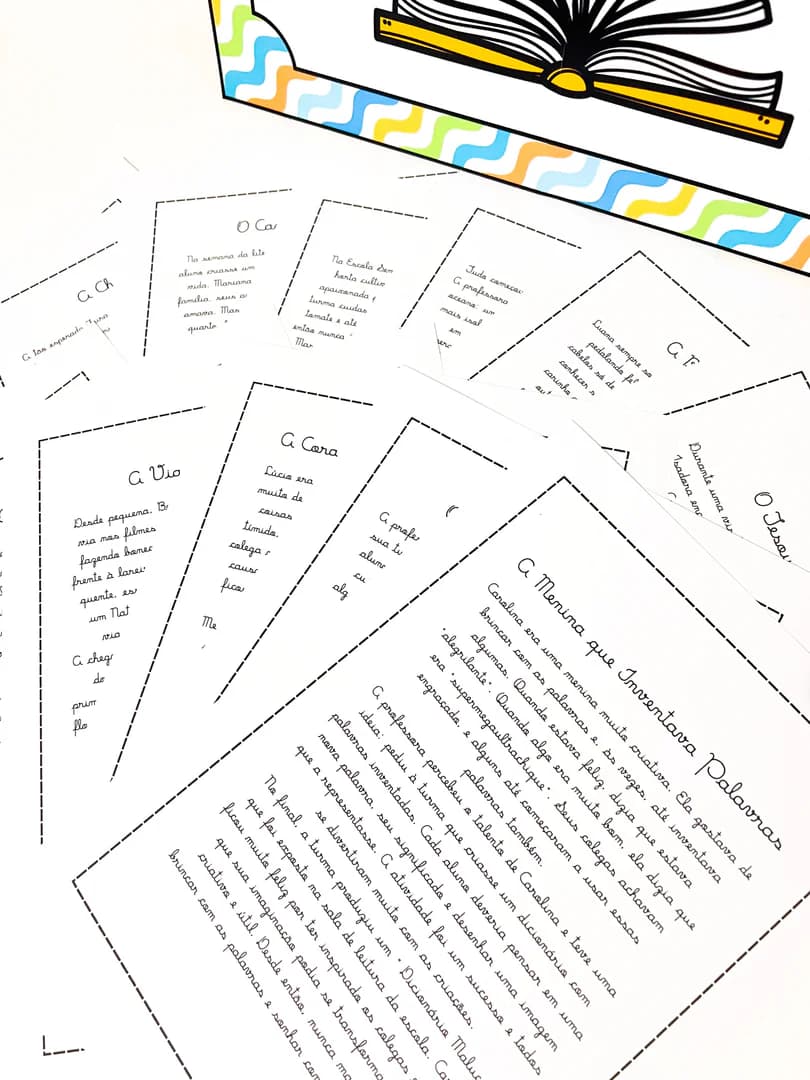 O Ca
Na semana da lite
aluno criasse um
vida. Mariana
família, seus a
amava. Mas
quarto
Na Escola Sem
horta cultiv
apaixonada
turma cuidas
tomate e até
entre nunca
Mar
Tudo começou
A professora
oceano: um
mais isol
em
A F
Luana sempre so
pedalando
cabelos só de
conhecer
caminho
A Ch
A tão esperada
O Tesou
Durante uma
Isadora enc
A Vio
Desde pequena, B
via nos filmes
fazendo bonec
frente à larei
quente, es
um Nat
via
A cheg
do
prim
flo
A Cora
Lúcia era
muito de
coisas
tímida.
colega
caus
fico
Me
A profes
sua tu
alun
cu
alg
A Menina que Inventava Palavras
Carolina era uma menina muito criativa. Ela gostava de
brincar com as palavras e, às vezes, até inventava
algumas. Quando estava feliz, dizia que estava
"alegrilante". Quando algo era muito bom, ela dizia que
era "supermegaultrachique". Seus colegas achavam
engraçado, e alguns até começaram a usar essas
palavras também.
A professora percebeu o talento de Carolina e teve uma
ideia: pediu à turma que criasse um dicionário com
palavras inventadas. Cada aluno deveria pensar em uma
nova palavra, seu significado e desenhar uma imagem
que a representasse. A atividade foi um sucesso e todos
se divertiram muito com as criações.
No final, a turma produziu um "Dicionário Maluc
que foi exposto na sala de leitura da escola. Ca
ficou muito feliz por ter inspirado os colegas
que sua imaginação podia se transforma
criativo e útil. Desde então, nunca ma
brincar com as palavras e sonhar com